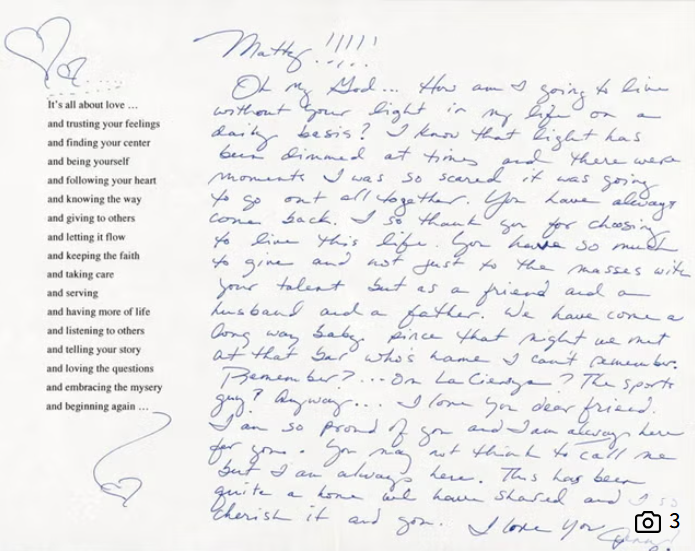 It's all about love ...
and trusting your feelings
and finding your center
and being yourself
and following your heart
and knowing the way
and giving to others
and letting it flow
and keeping the faith
and taking care
and serving
and having more of life
and listening to others
and telling your story
and loving the questions
and embracing the mysery
and beginning again ...
Matty !!!!!
Oh my God... How am I going to live
without your light in my life on a
daily basis? I know that light has
been dimmed at times and there were
moments I was so scared it was going
to go out all together. You have always
come back. I so thank you for choosing
to live this life. You have so much
to give and not just to the masses with
your talent but as a friend and a
husband and a father. We have come a
long way baby since that night we met
at that bar who's name I can't remember.
Remember?... On La Cienega? The sports
guy? Anyway... I love you dear friend.
I am so proud of you and I am always here
for you. You may not think to call me
but I am always here. This has been
quite a home we have shared and I so
cherish it and you. I love you
3